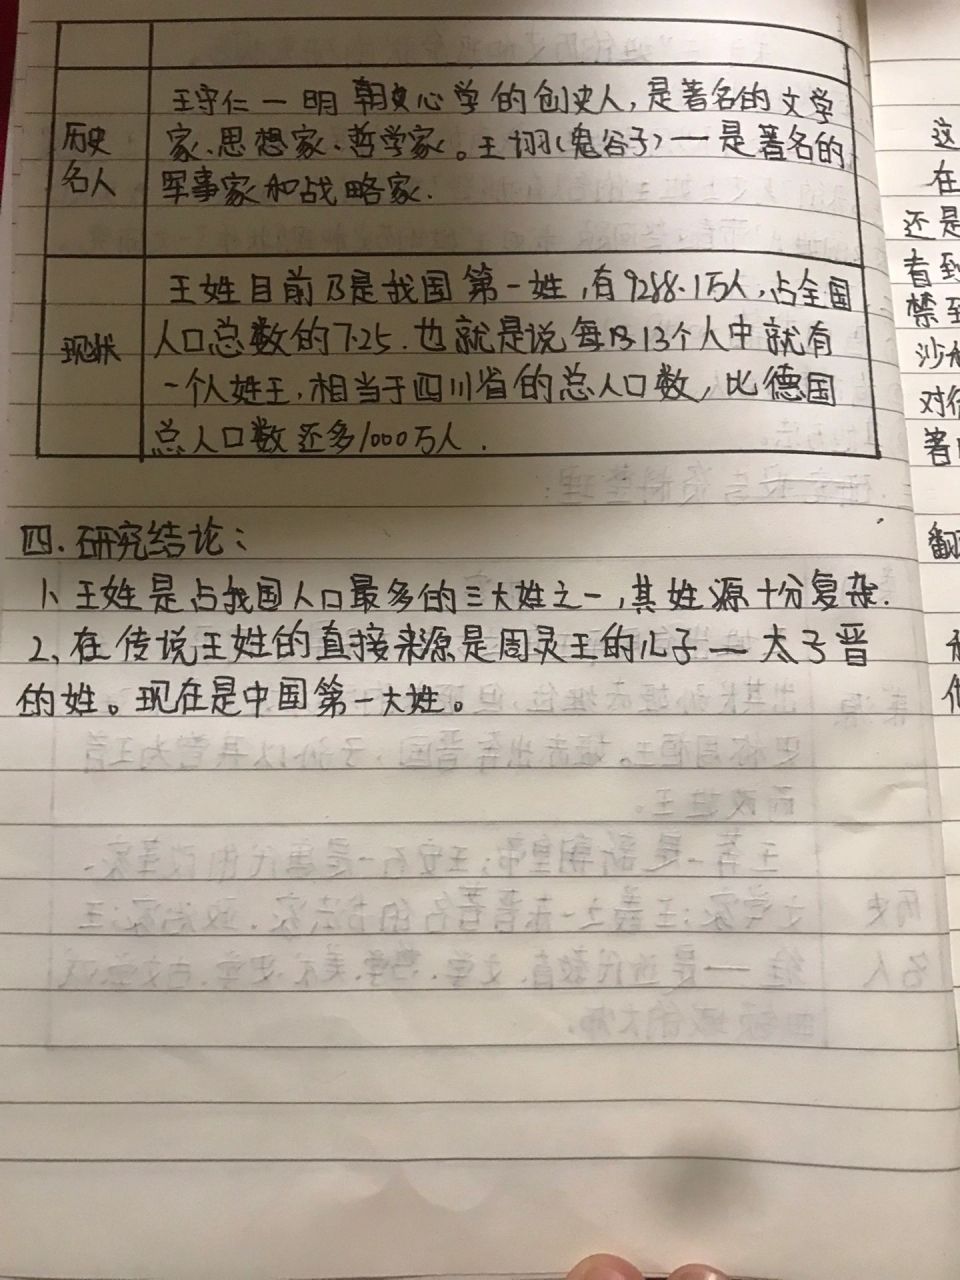 历史
名人
王守仁一明朝史心学的创史人,是著名的文学
家、思想家、哲学家。王诩(鬼谷子)一是著名的
军事家和战略家.
现状
王姓目前乃是我国第一姓,有9288.1万人,占全国
人口总数的7.25.也就是说每13个人中就有
一个人姓王,相当于四川省的总人口数,比德国
总人口数还多1000万人.
四.研究结论:
1、王姓是占我国人口最多的三大姓之一,其姓源十分复杂.
2、在传说王姓的直接来源是周灵王的儿子一太子晋
的姓。现在是中国第一大姓。
这
在
还是
看到
禁
沙
对
著
翻